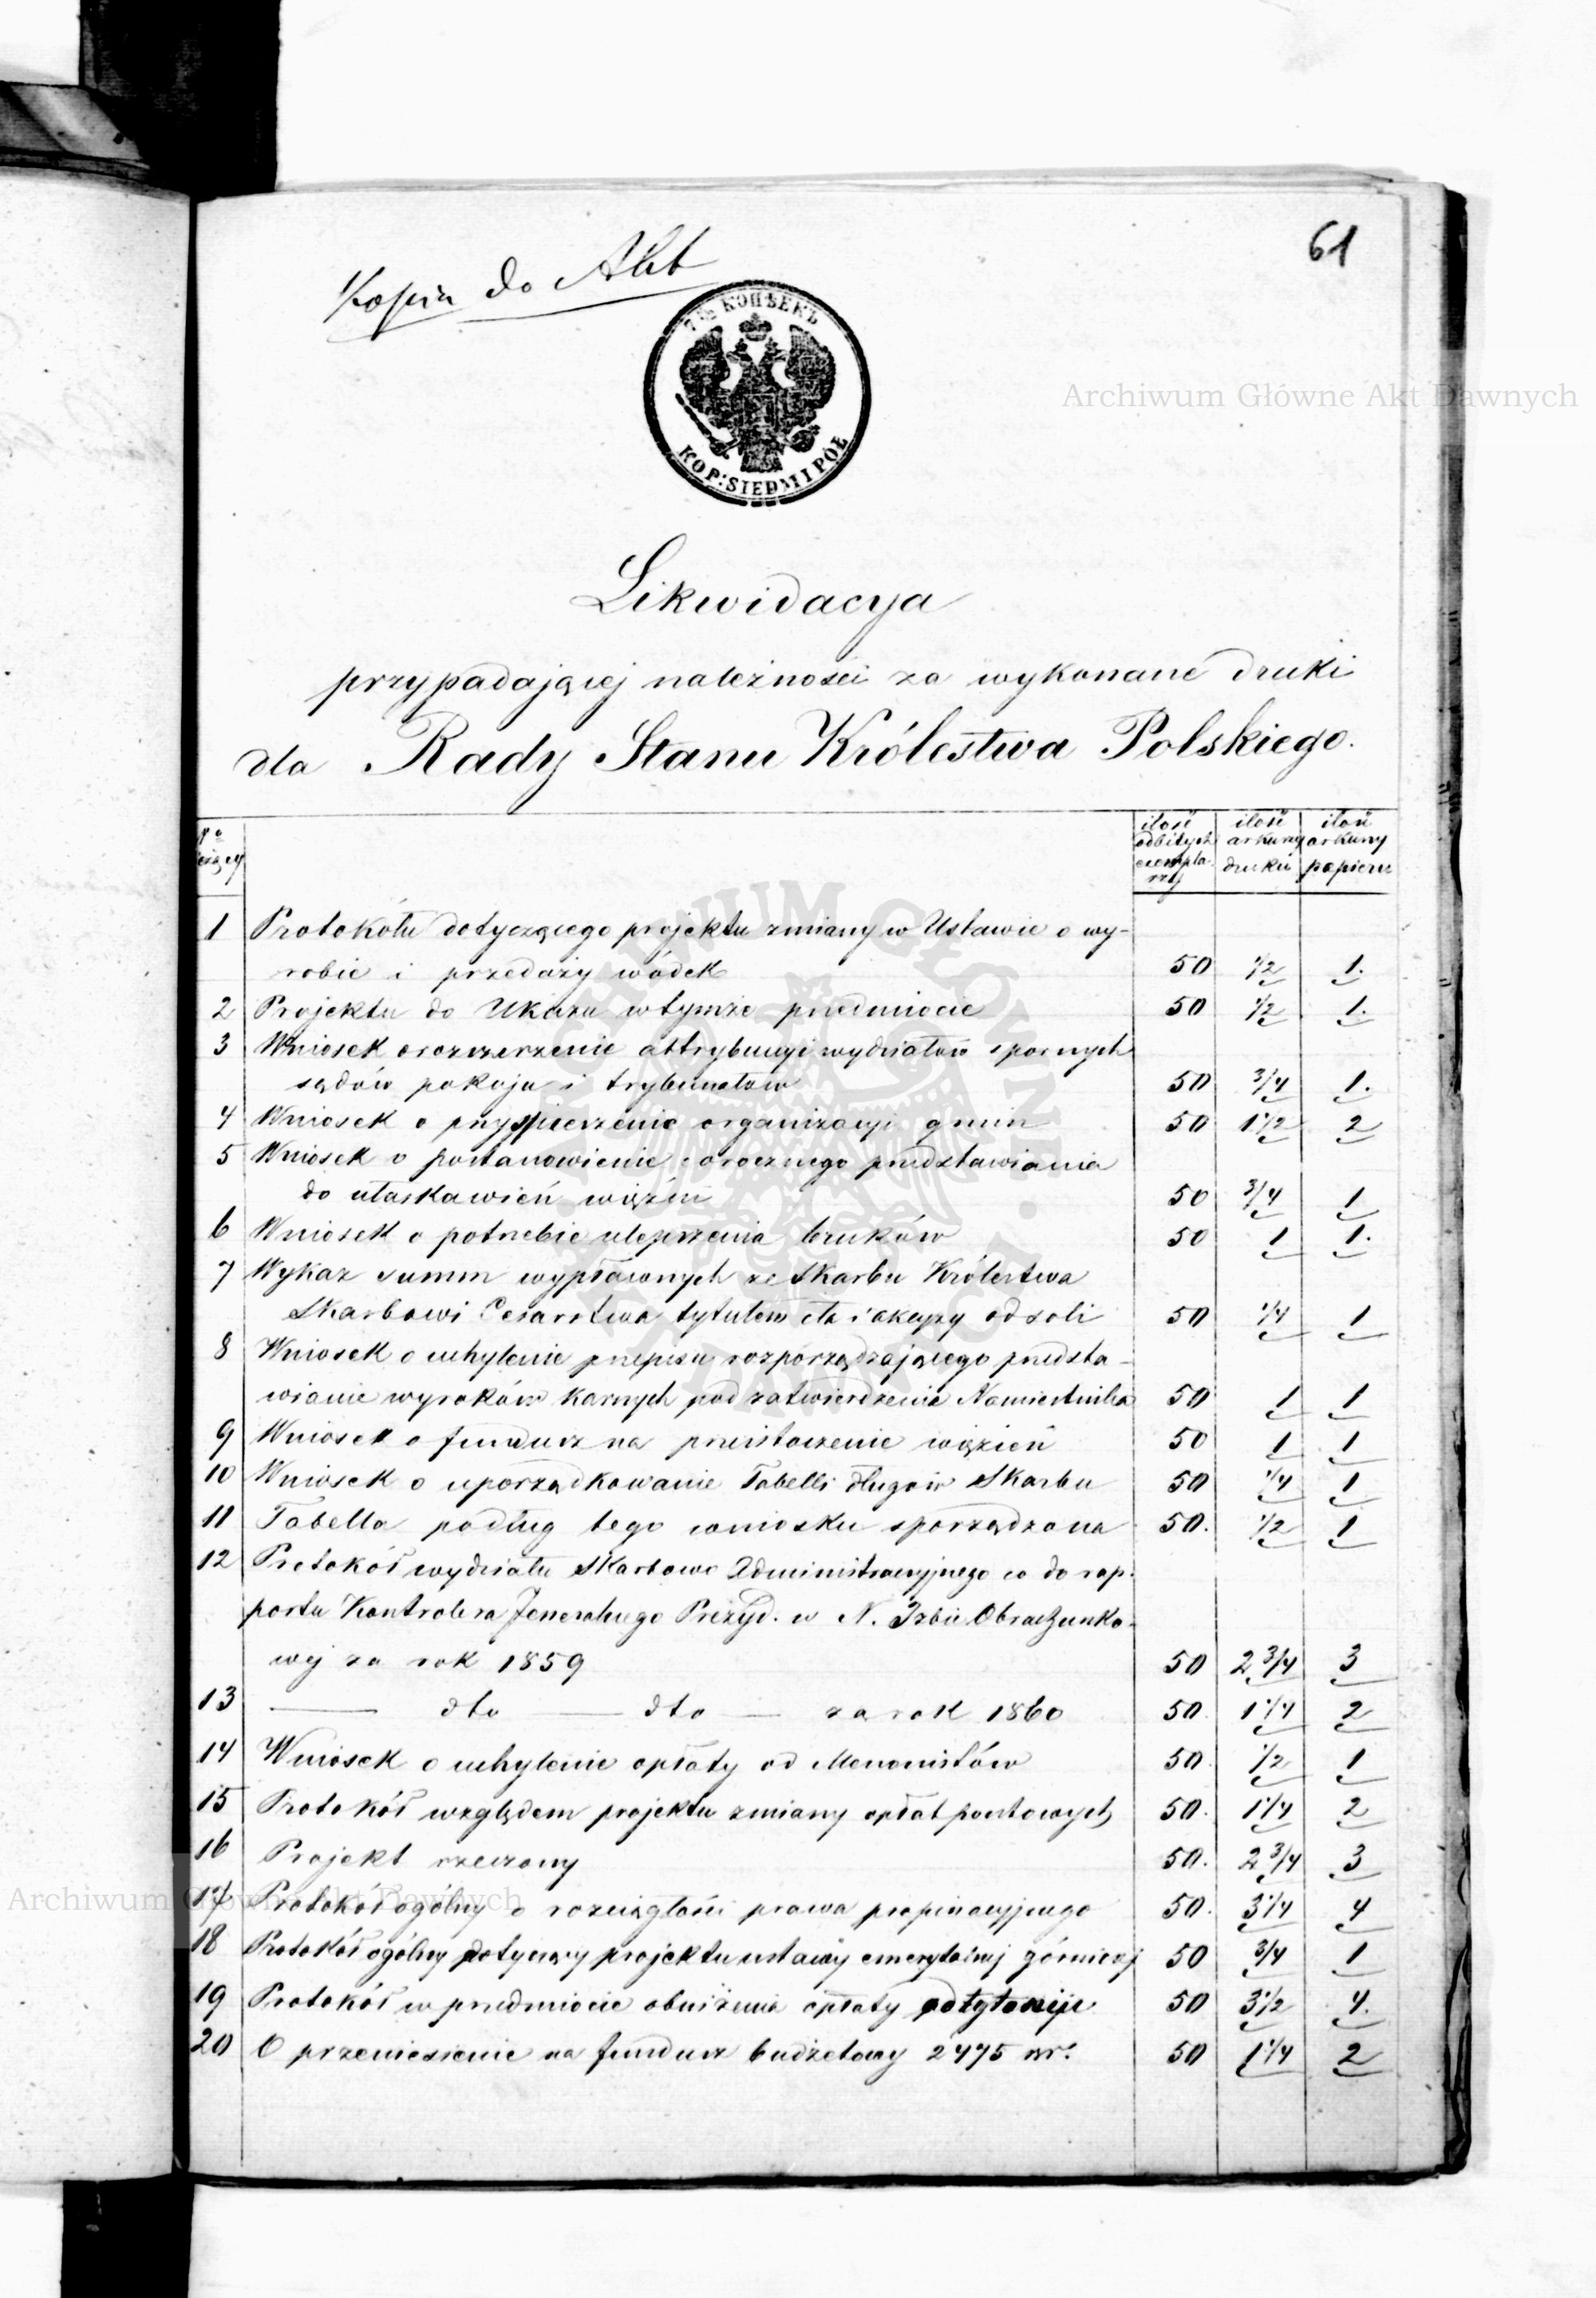 61
Kopia do Akt
7½ КОПѢЕКЪ
KOP: SIEDM I PÓŁ
Archiwum Główne Akt Dawnych
Likwidacya
przypadającej należności za wykonane druki
dla Rady Stanu Królestwa Polskiego.
ilość odbitych exempla- rzy ilość arkuszy druku ilość arkuszy papieru
1 Protokółu dotyczącego projektu zmiany w Ustawie o wy-
robie i przedaży wódek 50 1/2 1.
2 Projektu do Ukazu w tymże przedmiocie 50 1/2 1.
3 Wniosek o rozszerzenie attrybucyi wydziałów spornych
sądów pokoju i trybunałów 50 3/4 1.
4 Wniosek o przyspieszenie organizacyi gmin 50 1 1/2 2
5 Wniosek o postanowienie corocznego przedstawiania
do ułaskawień więźni 50 3/4 1
6 Wniosek o potrzebie ulepszenia bruków 50 1 1.
7 Wykaz summ wypłaconych ze Skarbu Królestwa
Skarbowi Cesarstwa tytułem cła i akcyzy od soli 50 1/4 1
8 Wniosek o uchylenie przepisu rozporządzającego przedsta-
wianie wyroków karnych pod zatwierdzenie Namiestnika 50 1 1
9 Wniosek o fundusz na przeistoczenie więzień 50 1 1
10 Wniosek o uporządkowanie Tabelli długów Skarbu 50 1/4 1
11 Tabella podług tego wniosku sporządzona 50. 1/2 1
12 Protokół wydziału Skarbowo Administracyjnego co do rap-
portu Kontrolera Jeneralnego Prezyd. w N. Izbie Obrachunko-
wej za rok 1859 50 2 3/4 3
13 — dto — dto — za rok 1860 50. 1 1/4 2
14 Wniosek o uchylenie opłaty od Menonistów 50. 1/2 1
15 Protokół względem projektu zmiany opłat pocztowych 50. 1 1/4 2
16 Projekt rzeczony 50. 2 3/4 3
Archiwum Główne Akt Dawnych
17 Protokół ogólny o rozciągłości prawa propinacyjnego 50. 3 1/4 4
18 Protokół ogólny dotyczący projektu ustawy emerytalnej górniczej 50 3/4 1
19 Protokół w przedmiocie obniżenia opłaty od tytoniju 50 3 1/2 4.
20 O przeniesienie na fundusz budżetowy 2475 rsr. 50 1 1/4 2